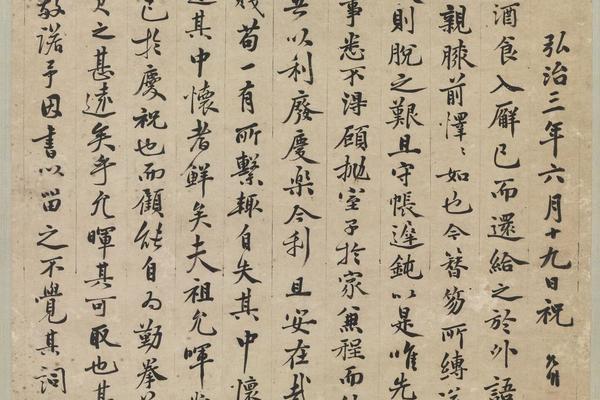 弘治三年六月十九日祝
酒食入廨已而還給之於外語
親膝前懌〻如也今簪笏所縛
則脫之艱且守帳遲鈍以是唯先
事悉不得顧拋室子於家兼程而
以利廢慶樂今利且安在哉
苟一有所繫輒自失其中懷
其中懷者鮮矣夫祖允暉
已於慶祝也而顧能自為勤拳
之甚遠矣乎允暉其可取也其
敬諾予因書以留之不覺其詞